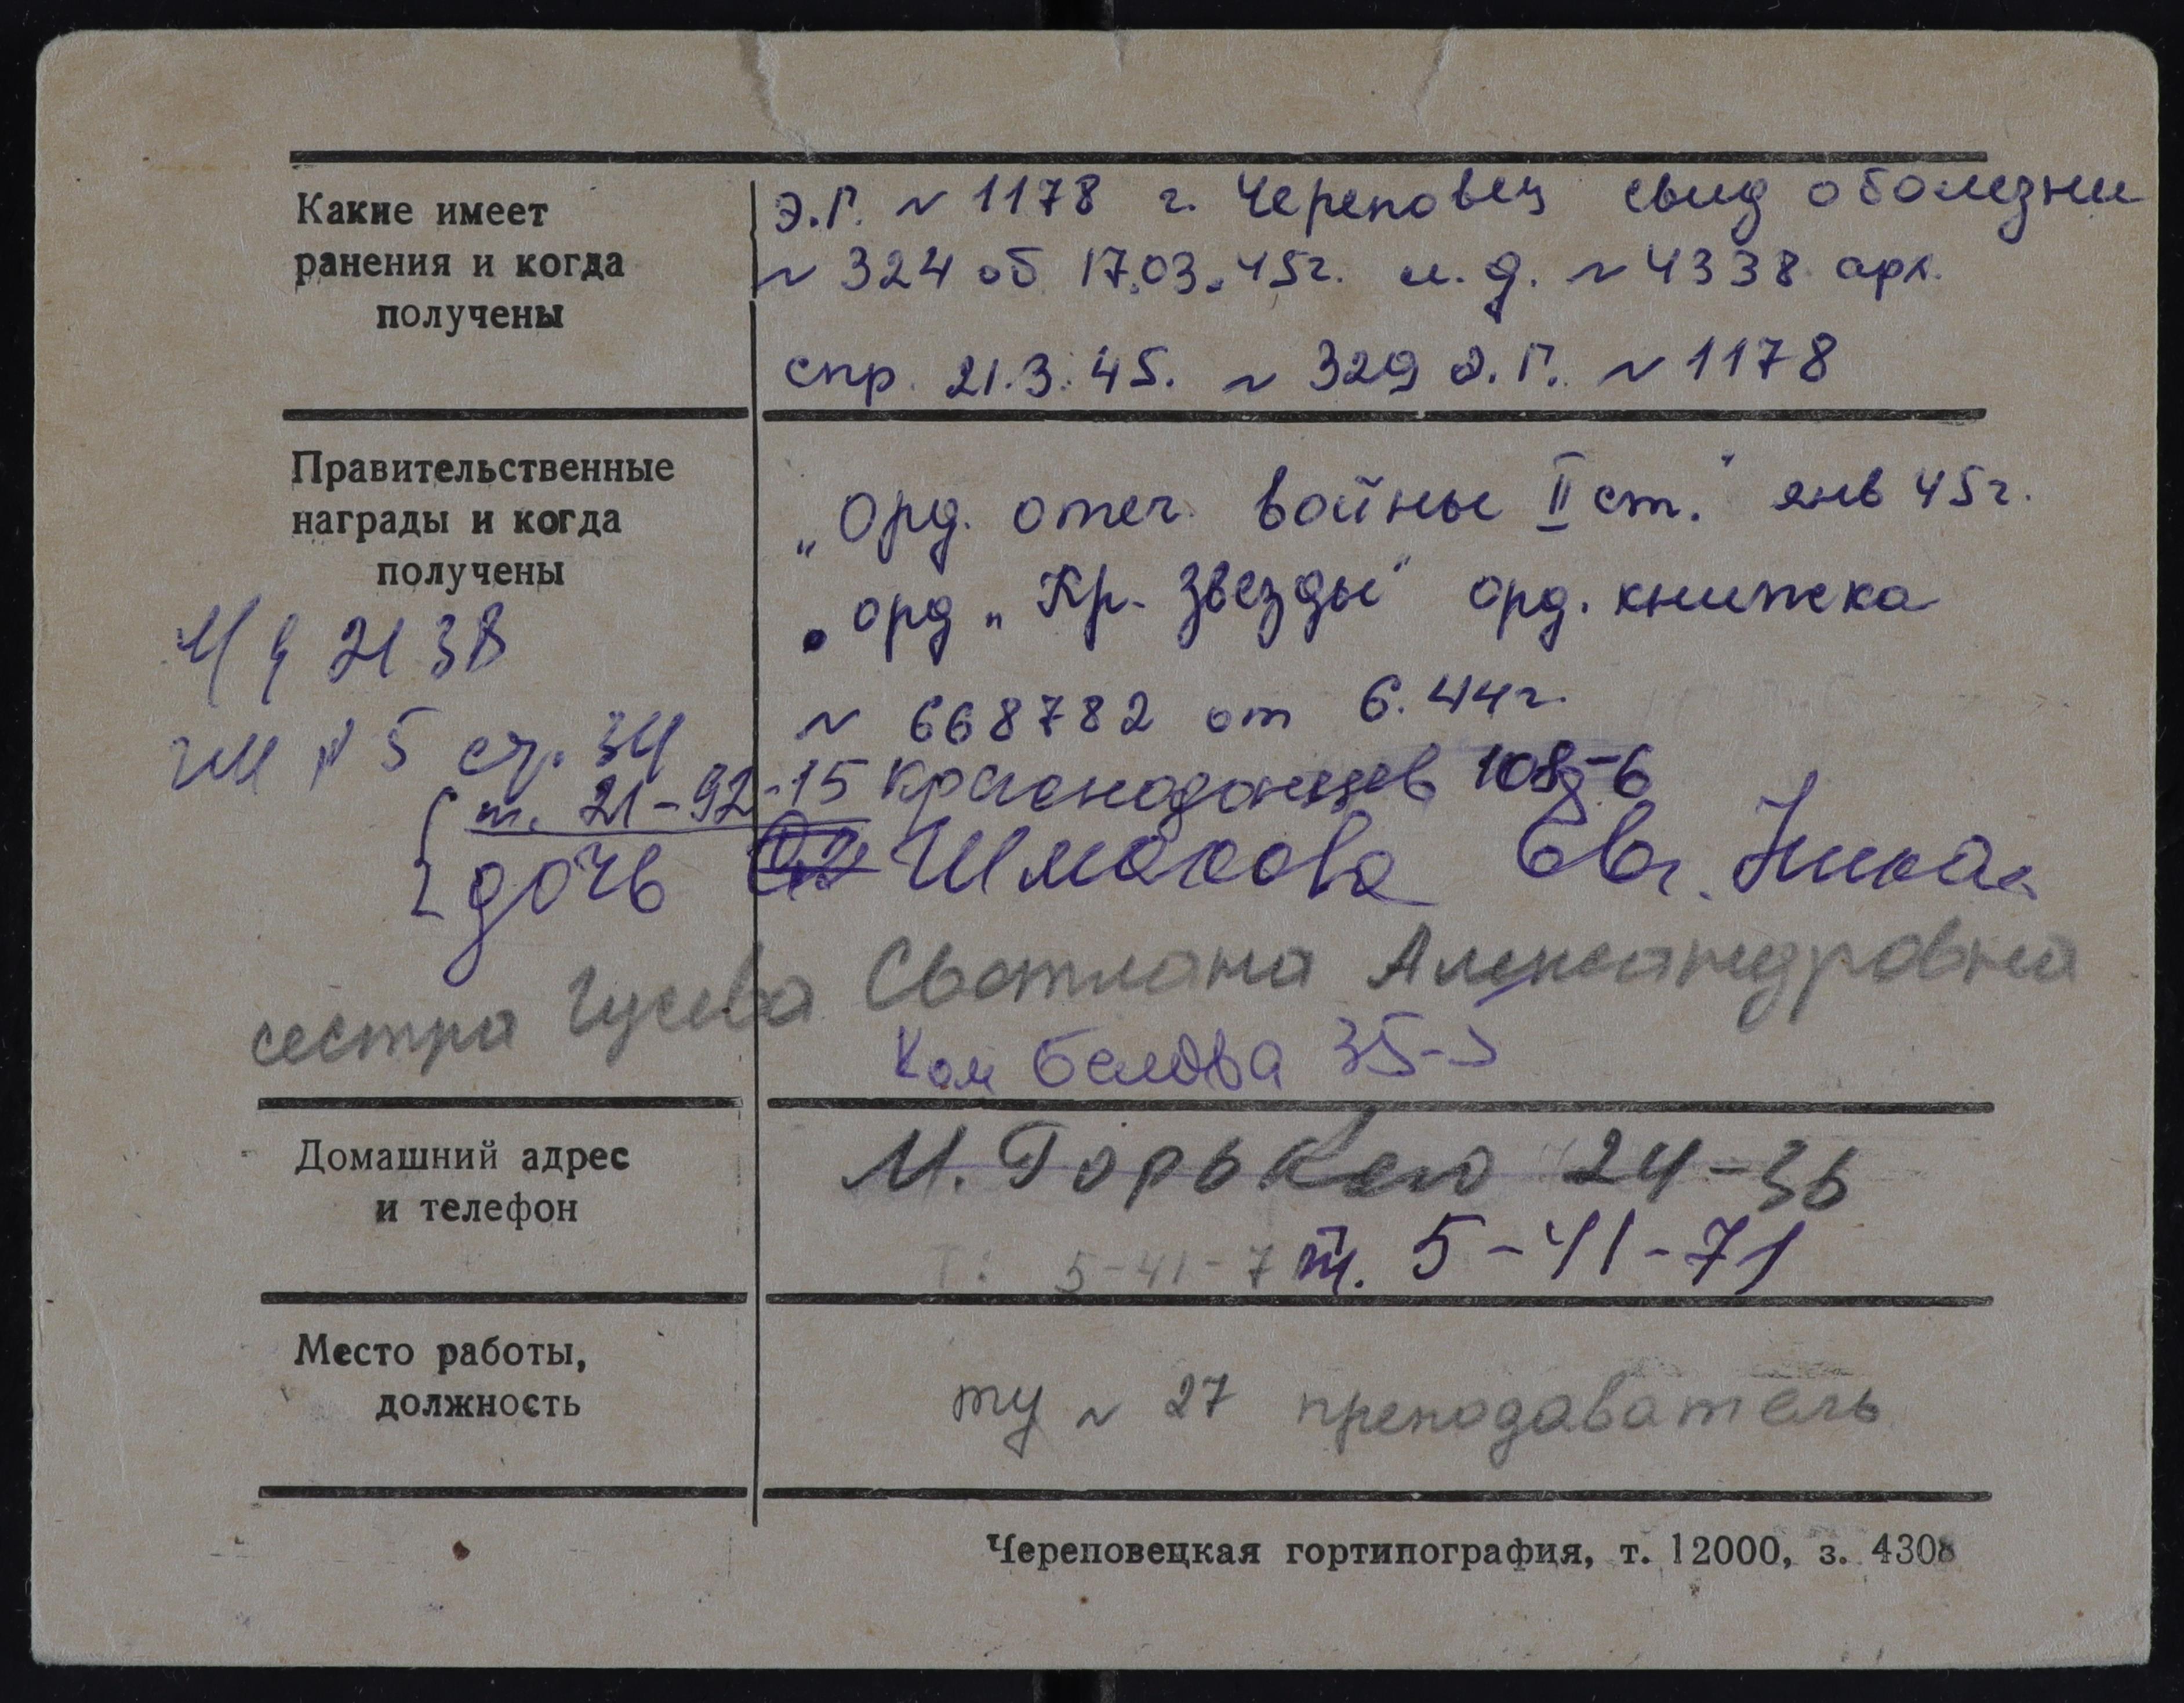 Какие имеет
ранения и когда
получены
Э.Г. N 1178 г. Череповец свид о болезни
N 324 об 17.03.45г. и.д. N 4338 арх.
спр. 21.3.45. N 329 Э.Г. N 1178
Правительственные
награды и когда
получены
„Орд. отеч. войны II ст.“ янв 45г.
„орд „Кр. Звезды“ орд. книжка
N 668782 от 6.44г.
2138
№ 5 стр. 34
т. 21-92-15 Краснодонцев 108-6
дочь Шмакова Евг. Никол
сестра Гусева Светлана Александровна
Ком Белова 35-5
Домашний адрес
и телефон
М. Горького 24-36
Т: 5-41-7 т. 5-41-71
Место работы,
должность
ту N 27 преподаватель
Череповецкая гортипография, т. 12000, з. 4308